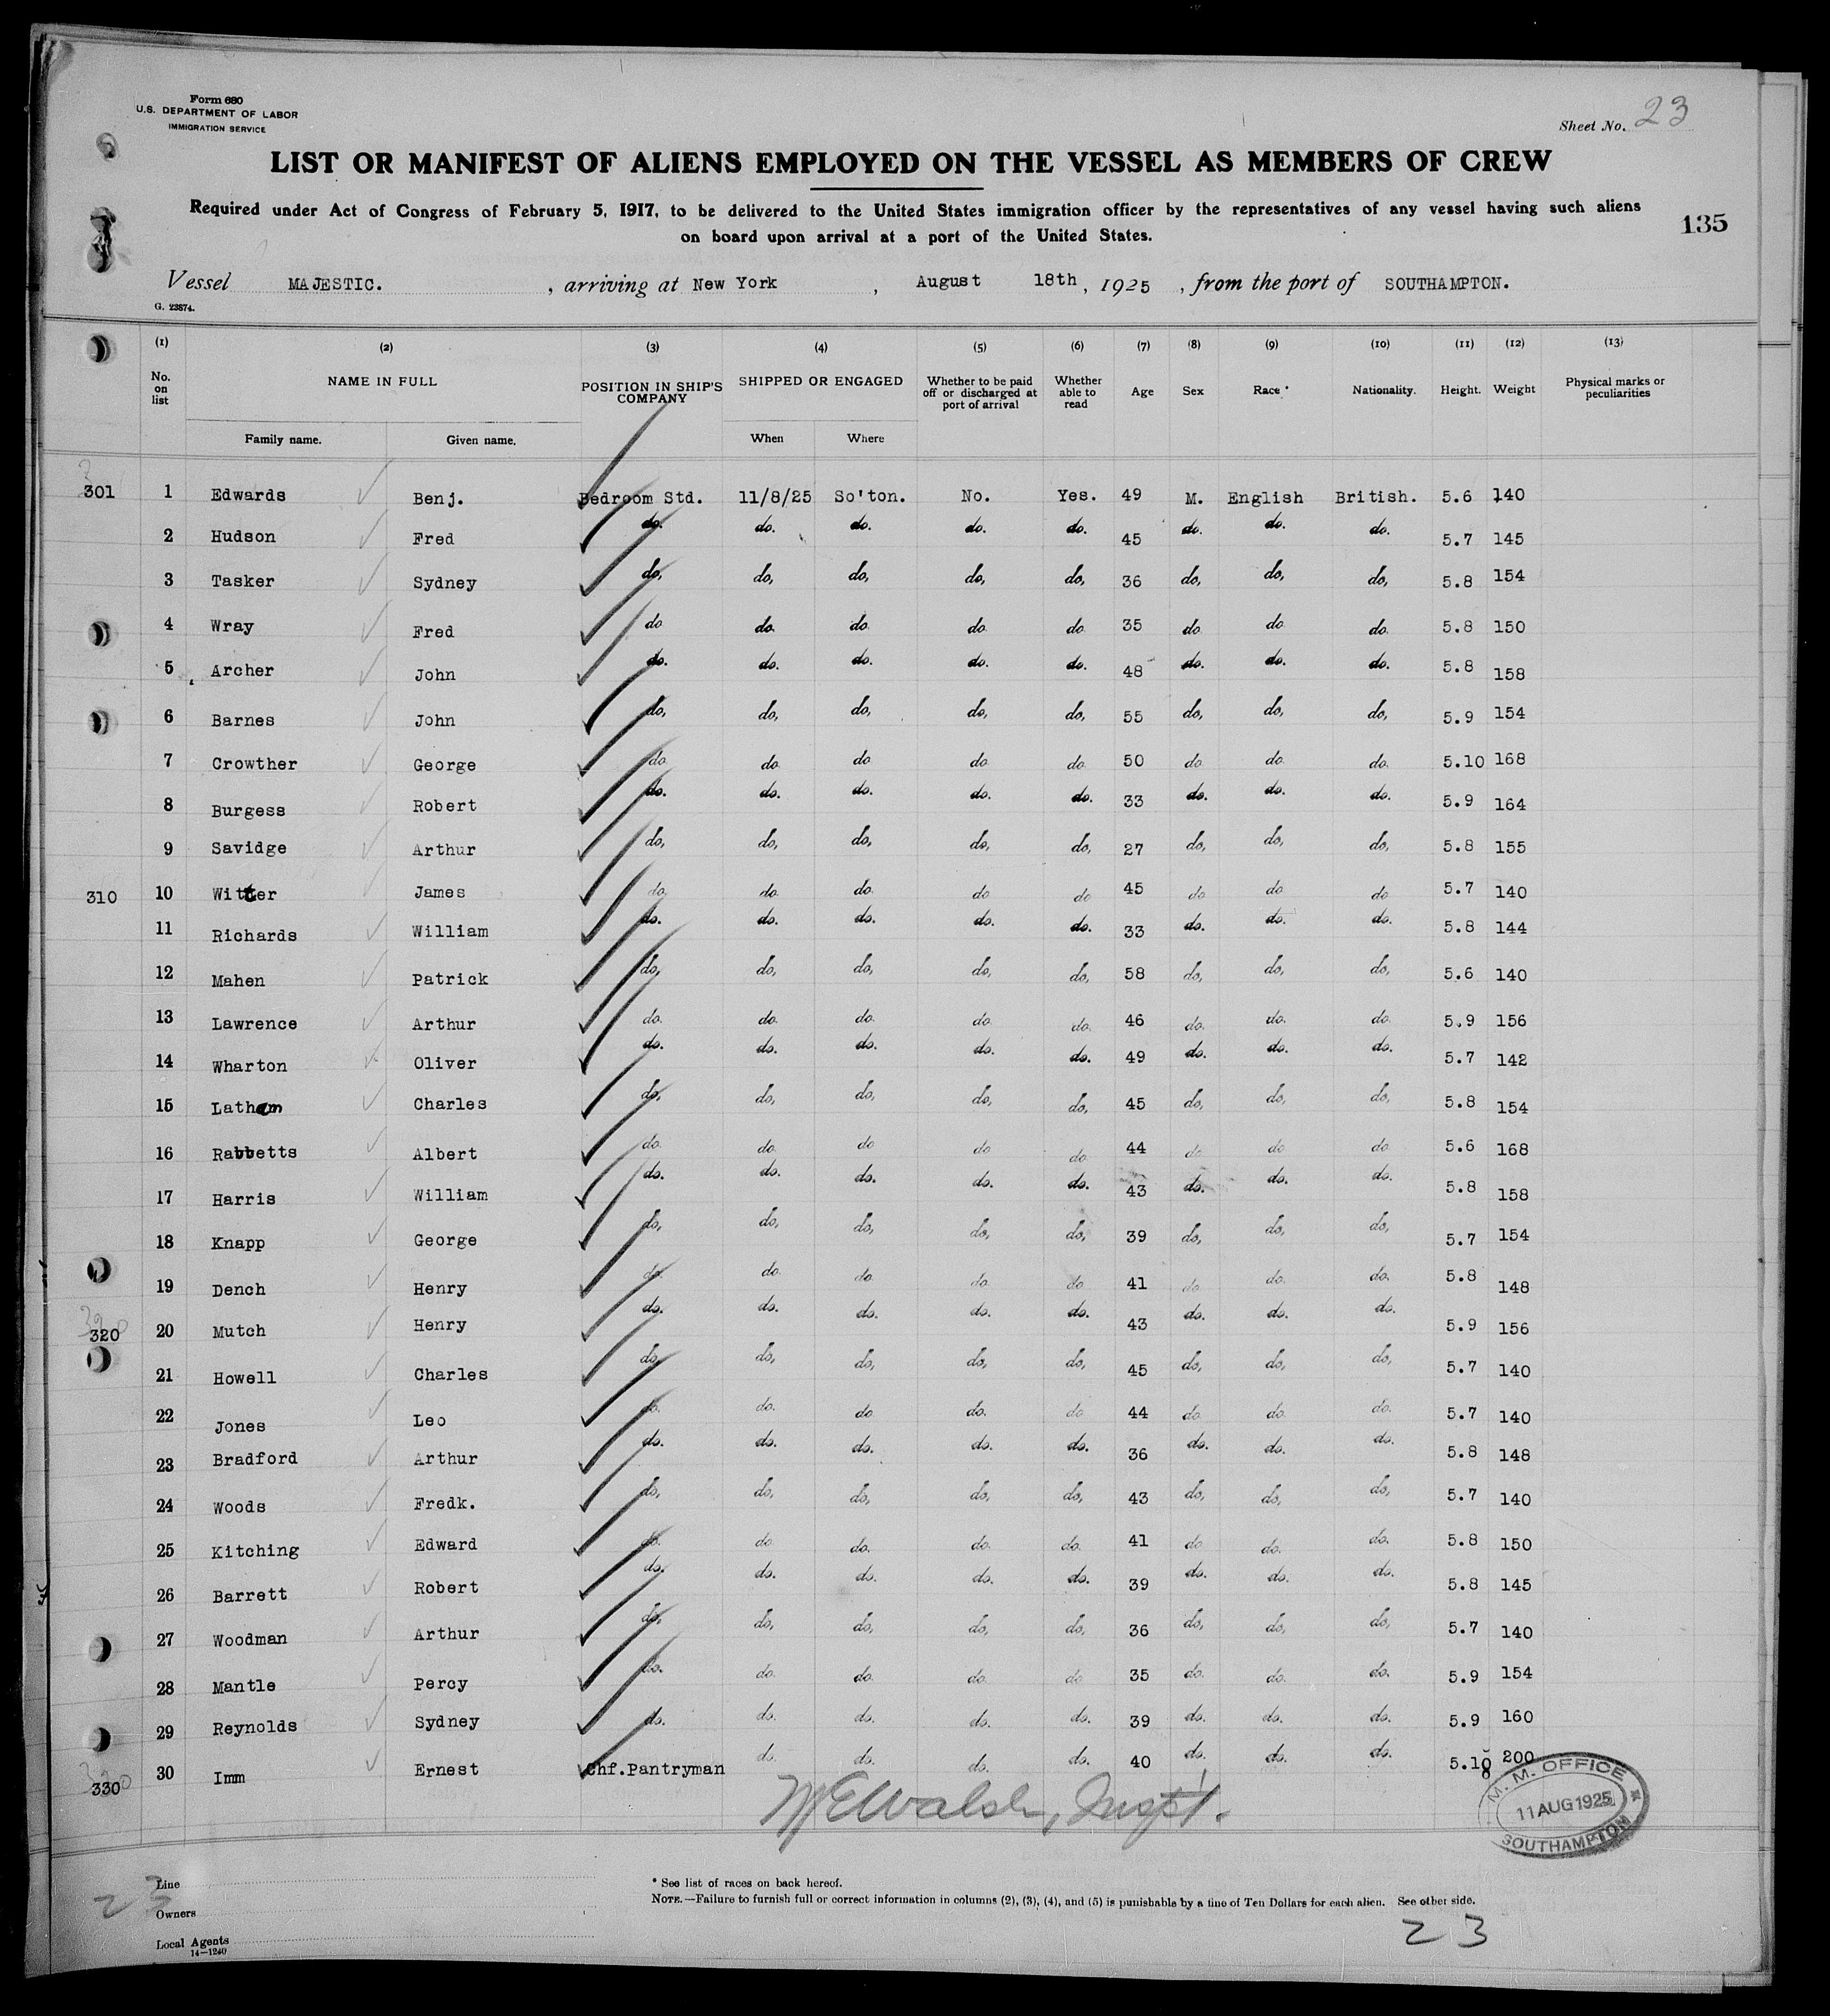 Form 680
U.S. DEPARTMENT OF LABOR
IMMIGRATION SERVICE
Sheet No. 23
LIST OR MANIFEST OF ALIENS EMPLOYED ON THE VESSEL AS MEMBERS OF CREW
Required under Act of Congress of February 5, 1917, to be delivered to the United States immigration officer by the representatives of any vessel having such aliens
on board upon arrival at a port of the United States.
135
Vessel MAJESTIC. , arriving at New York , August 18th, 1925 , from the port of SOUTHAMPTON.
G. 23874.
(1) (2) (3) (4) (5) (6) (7) (8) (9) (10) (11) (12) (13)
No. on list NAME IN FULL POSITION IN SHIP'S COMPANY SHIPPED OR ENGAGED Whether to be paid off or discharged at port of arrival Whether able to read Age Sex Race * Nationality. Height. Weight Physical marks or peculiarities
Family name. Given name. When Where
301 1 Edwards Benj. Bedroom Std. 11/8/25 So'ton. No. Yes. 49 M. English British. 5.6 140
2 Hudson Fred do. do. do. do. do. 45 do. do. do. 5.7 145
3 Tasker Sydney do, do, do, do, do, 36 do, do, do, 5.8 154
4 Wray Fred do do. do do do 35 do do do. 5.8 150
5 Archer John do. do. do. do. do. 48 do. do. do. 5.8 158
6 Barnes John do, do, do, do, do, 55 do, do, do, 5.9 154
7 Crowther George do. do do do do. 50 do do. do. 5.10 168
8 Burgess Robert do. do. do. do. do. 33 do. do. do. 5.9 164
9 Savidge Arthur do, do, do, do, do, 27 do, do, do, 5.8 155
310 10 Witter James do. do. do do do 45 do do do 5.7 140
11 Richards William do. do. do. do. do. 33 do. do. do. 5.8 144
12 Mahen Patrick do, do, do, do, do, 58 do, do, do, 5.6 140
13 Lawrence Arthur do. do. do. do. do. 46 do. do. do. 5.9 156
14 Wharton Oliver do. do. do. do. do. 49 do. do. do. 5.7 142
15 Latham Charles do, do, do, do, do, 45 do, do, do, 5.8 154
16 Rabbetts Albert do. do. do do do. 44 do do do 5.6 168
17 Harris William do. do. do. do. do. 43 do. do. do. 5.8 158
18 Knapp George do, do, do, do, do, 39 do, do, do, 5.7 154
19 Dench Henry do. do. do do. do 41 do do. do. 5.8 148
320 20 Mutch Henry do. do. do. do. do. 43 do. do. do. 5.9 156
21 Howell Charles do, do, do, do, do, 45 do, do, do, 5.7 140
22 Jones Leo do. do. do do. do 44 do do. do. 5.7 140
23 Bradford Arthur do. do. do. do. do. 36 do. do. do. 5.8 148
24 Woods Fredk. do, do, do, do, do, 43 do, do, do, 5.7 140
25 Kitching Edward do. do. do. do. do. 41 do do. do. 5.8 150
26 Barrett Robert do. do. do. do. do. 39 do. do. do. 5.8 145
27 Woodman Arthur do, do, do, do, do, 36 do, do, do, 5.7 140
28 Mantle Percy do. do. do. do. do 35 do. do. do. 5.9 154
29 Reynolds Sydney do. do. do. do. do. 39 do. do. do. 5.9 160
330 30 Imm Ernest Chf.Pantryman do. do. do. do. 40 do. do. do. 5.10 200
8
W E Walsh, Insp't.
M. M. OFFICE
11 AUG 1925
SOUTHAMPTON
Line
23
Owners
Local Agents
14—1240
* See list of races on back hereof.
NOTE.—Failure to furnish full or correct information in columns (2), (3), (4), and (5) is punishable by a fine of Ten Dollars for each alien. See other side.
23